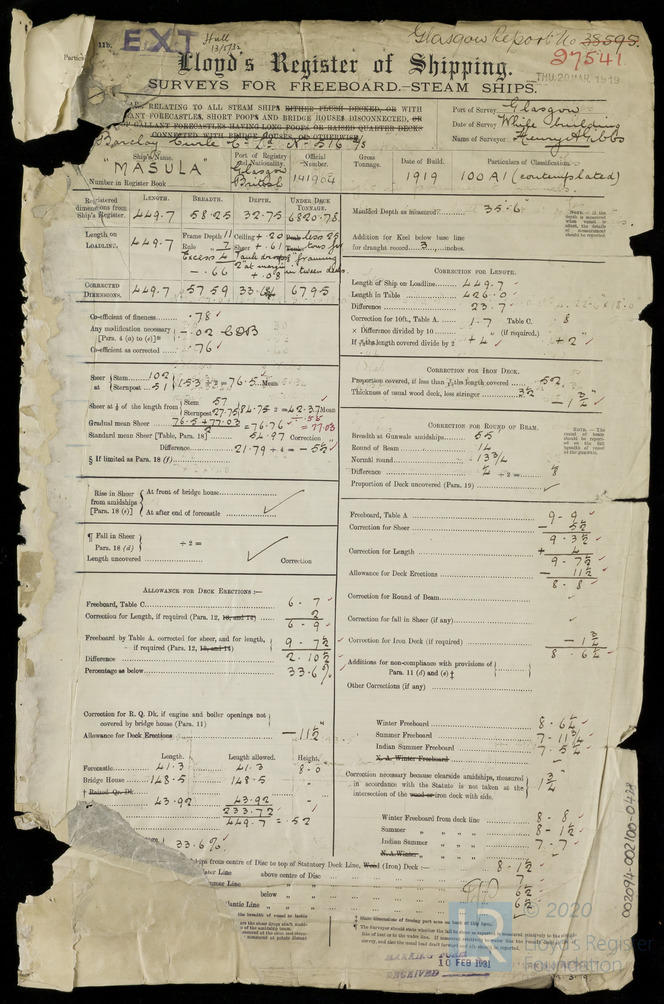 11b.
EXT
Hull
13/5/32
Glasgow Report No 38595.
27541
Lloyd's Register of Shipping.
THU. 20 MAR. 1919
SURVEYS FOR FREEBOARD.—STEAM SHIPS.
RELATING TO ALL STEAM SHIPS EITHER FLUSH DECKED, OR WITH
FORECASTLES, SHORT POOPS AND BRIDGE HOUSES DISCONNECTED, OR
GALLANT FORECASTLES HAVING LONG POOPS OR RAISED QUARTER DECKS
CONNECTED WITH BRIDGE HOUSES, OR OTHERWISE
Port of Survey Glasgow
Date of Survey While building
Name of Surveyor Henry A Gibbs
Barclay Curle & Co Ld No 516
Ship's Name.
"MASULA"
Number in Register Book
Port of Registry and Nationality.
Glasgow
British
Official Number.
141904
Gross Tonnage.
Date of Build.
1919
Particulars of Classification.
100 A1 (contemplated)
LENGTH. BREADTH. DEPTH. UNDER DECK TONNAGE.
Registered dimensions from Ship's Register. 449.7 58.25 32.75 6820.78
Length on LOADLINE. 449.7
Frame Depth 11 Ceiling + .20
Rule 7 Sheer + .61
Excess 4
- .66
CORRECTED DIMENSIONS. 449.7 57.59 6795
Co-efficient of fineness .78
Any modification necessary [Para. 4 (a) to (e)]* - .02
Co-efficient as corrected .76
Sheer at Stem 102
Sternpost 51
153 ÷ 2 = 76.5 Mean
Sheer at 1/8 of the length from Stem 57
Sternpost 27.75
84.75 ÷ 2 = 42.37 Mean
Gradual mean Sheer 76.5 + 77.03 = 76.76
÷ .55
= 77.03
Standard mean Sheer [Table, Para. 18] 54.97 Correction
Difference 21.79 ÷ 4 = - 5½
§ If limited as Para. 18 (f)
Rise in Sheer from amidships [Para. 18 (e)]
At front of bridge house
At after end of forecastle
¶ Fall in Sheer Para. 18 (d) ÷ 2 =
Length uncovered Correction
ALLOWANCE FOR DECK ERECTIONS :—
Freeboard, Table C 6 - 7
Correction for Length, if required (Para. 12, 13, and 14) 2
6 - 9
Freeboard by Table A. corrected for sheer, and for length, if required (Para. 12, 13, and 14) 9 - 7½
Difference 2 - 10½
Percentage as below 33.6%
Correction for R. Q. Dk. if engine and boiler openings not covered by bridge house (Para. 11)
Allowance for Deck Erections - 11½"
Length. Length allowed. Height.
Forecastle 41.3 41.3 8.0
Bridge House 148.5 148.5
† Raised Qr. Dk.
43.92 43.92
233.72
449.7 = .52
33.6%
Moulded Depth as measured 35.6
Addition for Keel below base line for draught record 3 inches.
NOTE.—If the depth is measured when vessel is afloat, the details of measurement should be reported.
CORRECTION FOR LENGTH.
Length of Ship on Loadline 449.7
Length in Table 426.0
Difference 23.7
Correction for 10ft., Table A. 1.7 Table C. .8
× Difference divided by 10 (if required.)
If 6/10ths length covered divide by 2 + 4 + 2"
CORRECTION FOR IRON DECK.
Proportion covered, if less than 7/10ths length covered .52
Thickness of usual wood deck, less stringer 3½
- 1¾"
CORRECTION FOR ROUND OF BEAM.
Breadth at Gunwale amidships 55
Round of Beam 14
Normal round 13¾
Difference ¼ ÷ 2 = ⅛
Proportion of Deck uncovered (Para. 19)
Freeboard, Table A 9 - 9
Correction for Sheer - 5½
9 - 3½
Correction for Length + 4
9 - 7½
Allowance for Deck Erections - 11½
8 - 8
Correction for Round of Beam
Correction for fall in Sheer (if any)
Correction for Iron Deck (if required) - 1¾
8 - 6¼
Additions for non-compliance with provisions of Para. 11 (d) and (e) ‡
Other Corrections (if any)
Winter Freeboard 8 - 6¼
Summer Freeboard 7 - 11¾
Indian Summer Freeboard 7 - 5¼
N. A. Winter Freeboard
Correction necessary because clearside amidships, measured in accordance with the Statute is not taken at the intersection of the wood or iron deck with side. 1¾"
Winter Freeboard from deck line 8 - 8
Summer " " " 8 - 1½
Indian Summer " " 7 - 7
N. A. Winter " "
from centre of Disc to top of Statutory Deck Line, Wood (Iron) Deck :— 8 - 1½
Water Line above centre of Disc 7
Summer Line " " 6½
below " " 6½
lantic Line " "
MARKING FORM
10 FEB 1931
RECEIVED
002094-002100-0424
© 2020
Lloyd's Register
Foundation